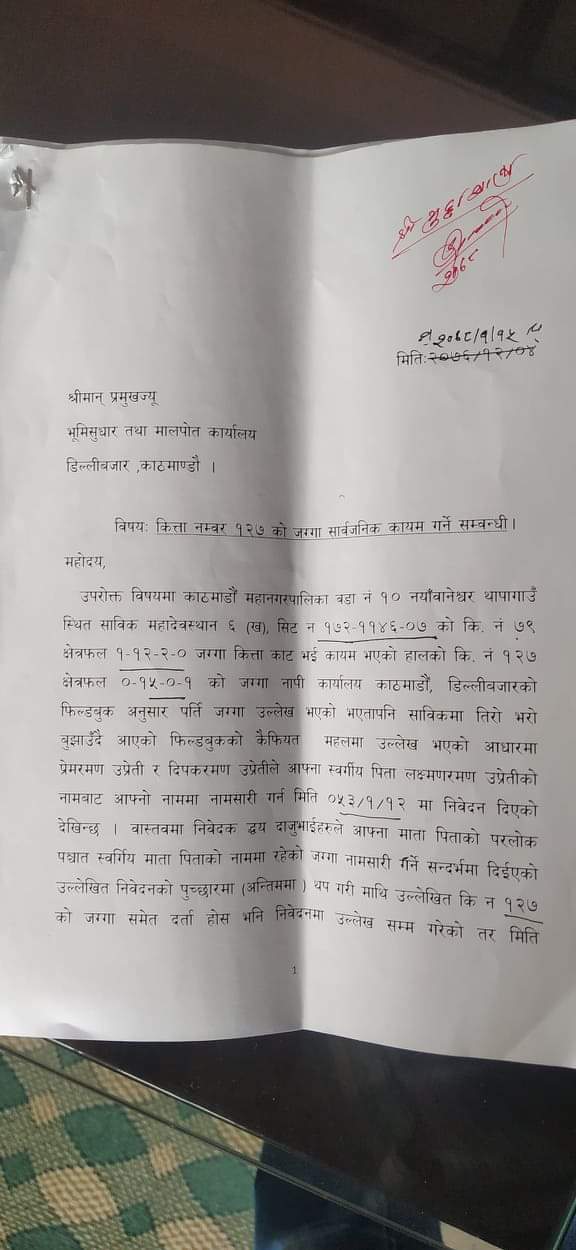 श्री मुद्दा शाखा
२०७८
२०७८/१/१५
मितिः २०७६/१२/०४
श्रीमान् प्रमुखज्यू
भूमिसुधार तथा मालपोत कार्यालय
डिल्लीबजार ,काठमाण्डौ ।
विषयः कित्ता नम्बर १२७ को जग्गा सार्वजनिक कायम गर्ने सम्वन्धी।
महोदय,
उपरोक्त विषयमा काठमाडौं महानगरपालिका वडा नं १० नयाँवानेश्वर थापागाउँ
स्थित साविक महादेवस्थान ६ (ख), सिट न १७२-११४६-०७ को कि. नं ७९
क्षेत्रफल १-१२-२-० जग्गा कित्ता काट भई कायम भएको हालको कि. नं १२७
क्षेत्रफल ०-१५-०-१ को जग्गा नापी कार्यालय काठमाडौं, डिल्लीबजारको
फिल्डबुक अनुसार पर्ति जग्गा उल्लेख भएको भएतापनि साविकमा तिरो भरो
बुझाउँदै आएको फिल्डबुकको कैफियत महलमा उल्लेख भएको आधारमा
प्रेमरमण उप्रेती र दिपकरमण उप्रेतीले आफ्ना स्वर्गीय पिता लक्ष्मणरमण उप्रेतीको
नामबाट आफ्नो नाममा नामसारी गर्न मिति ०५३/१/१२ मा निवेदन दिएको
देखिन्छ । वास्तवमा निवेदक द्वय दाजुभाईहरुले आफ्ना माता पिताको परलोक
पश्चात स्वर्गिय माता पिताको नाममा रहेको जग्गा नामसारी गर्ने सन्दर्भमा दिईएको
उल्लेखित निवेदनको पुच्छारमा (अन्तिममा ) थप गरी माथि उल्लेखित कि न १२७
को जग्गा समेत दर्ता होस भनि निवेदनमा उल्लेख सम्म गरेको तर मिति
1